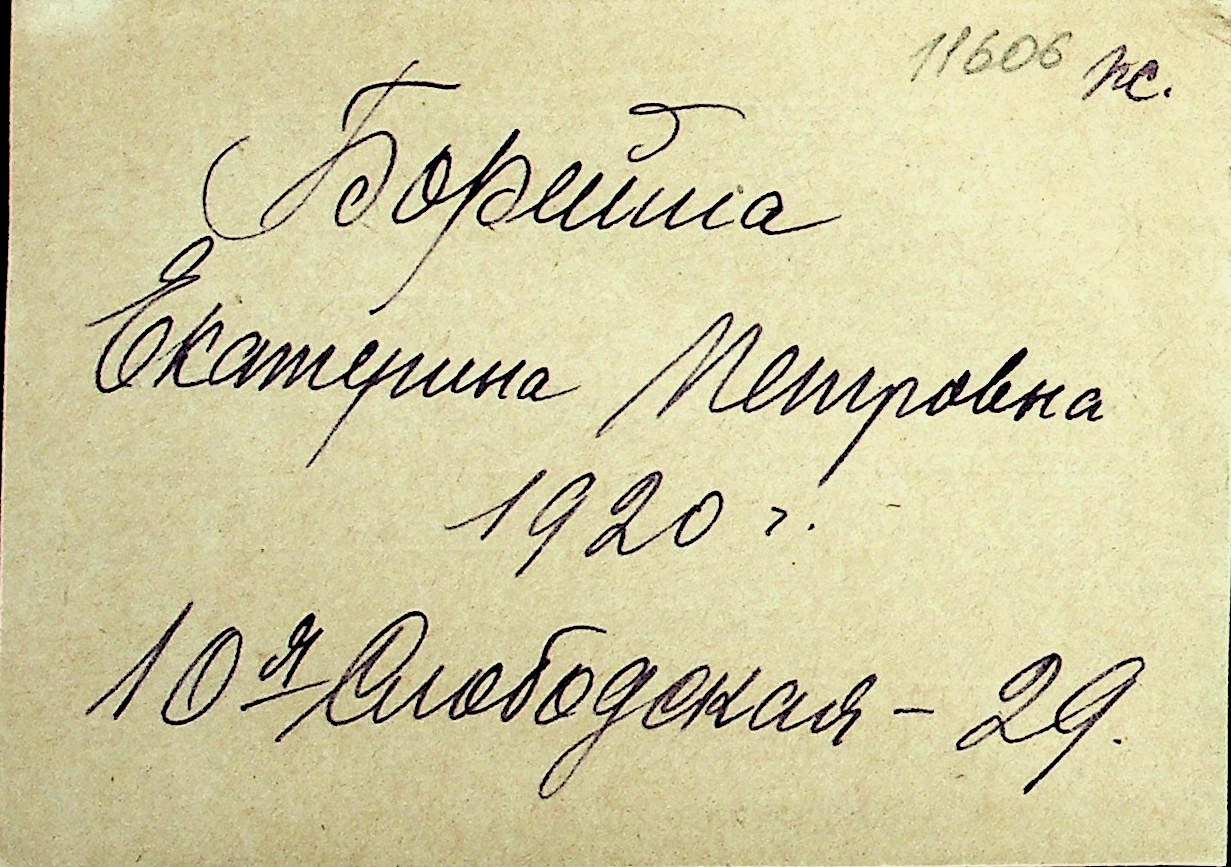 11606 пс.
Борейша
Екатерина Петровна
1920 г.
10я Слободская - 29.